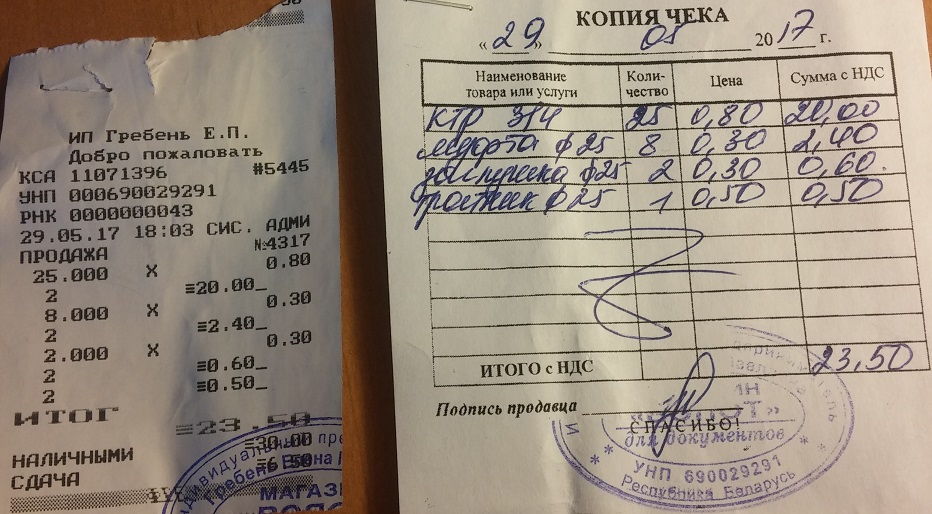 ИП Гребень Е.П.
Добро пожаловать
КСА 11071396 #5445
УНП 000690029291
РНК 0000000043
29.05.17 18:03 СИС. АДМИ
№4317
ПРОДАЖА
25.000 X 0.80
2 ≡20.00_
8.000 X 0.30
2 ≡2.40_
2.000 X 0.30
2 ≡0.60_
2 ≡0.50_
ИТОГ ≡23.50
НАЛИЧНЫМИ ≡30.00
СДАЧА ≡6.50
Гребень
МАГАЗ
КОПИЯ ЧЕКА
« 29 » 05 2017 г.
Наименование товара или услуги Коли-чество Цена Сумма с НДС
КТР 3/4 25 0,80 20,00
ф25 8 0,30 2,40
заглушка ф25 2 0,30 0,60
тройник ф25 1 0,50 0,50
ИТОГО с НДС 23,50
Подпись продавца
СПАСИБО!
для документов
УНП 690029291
Республика Беларусь